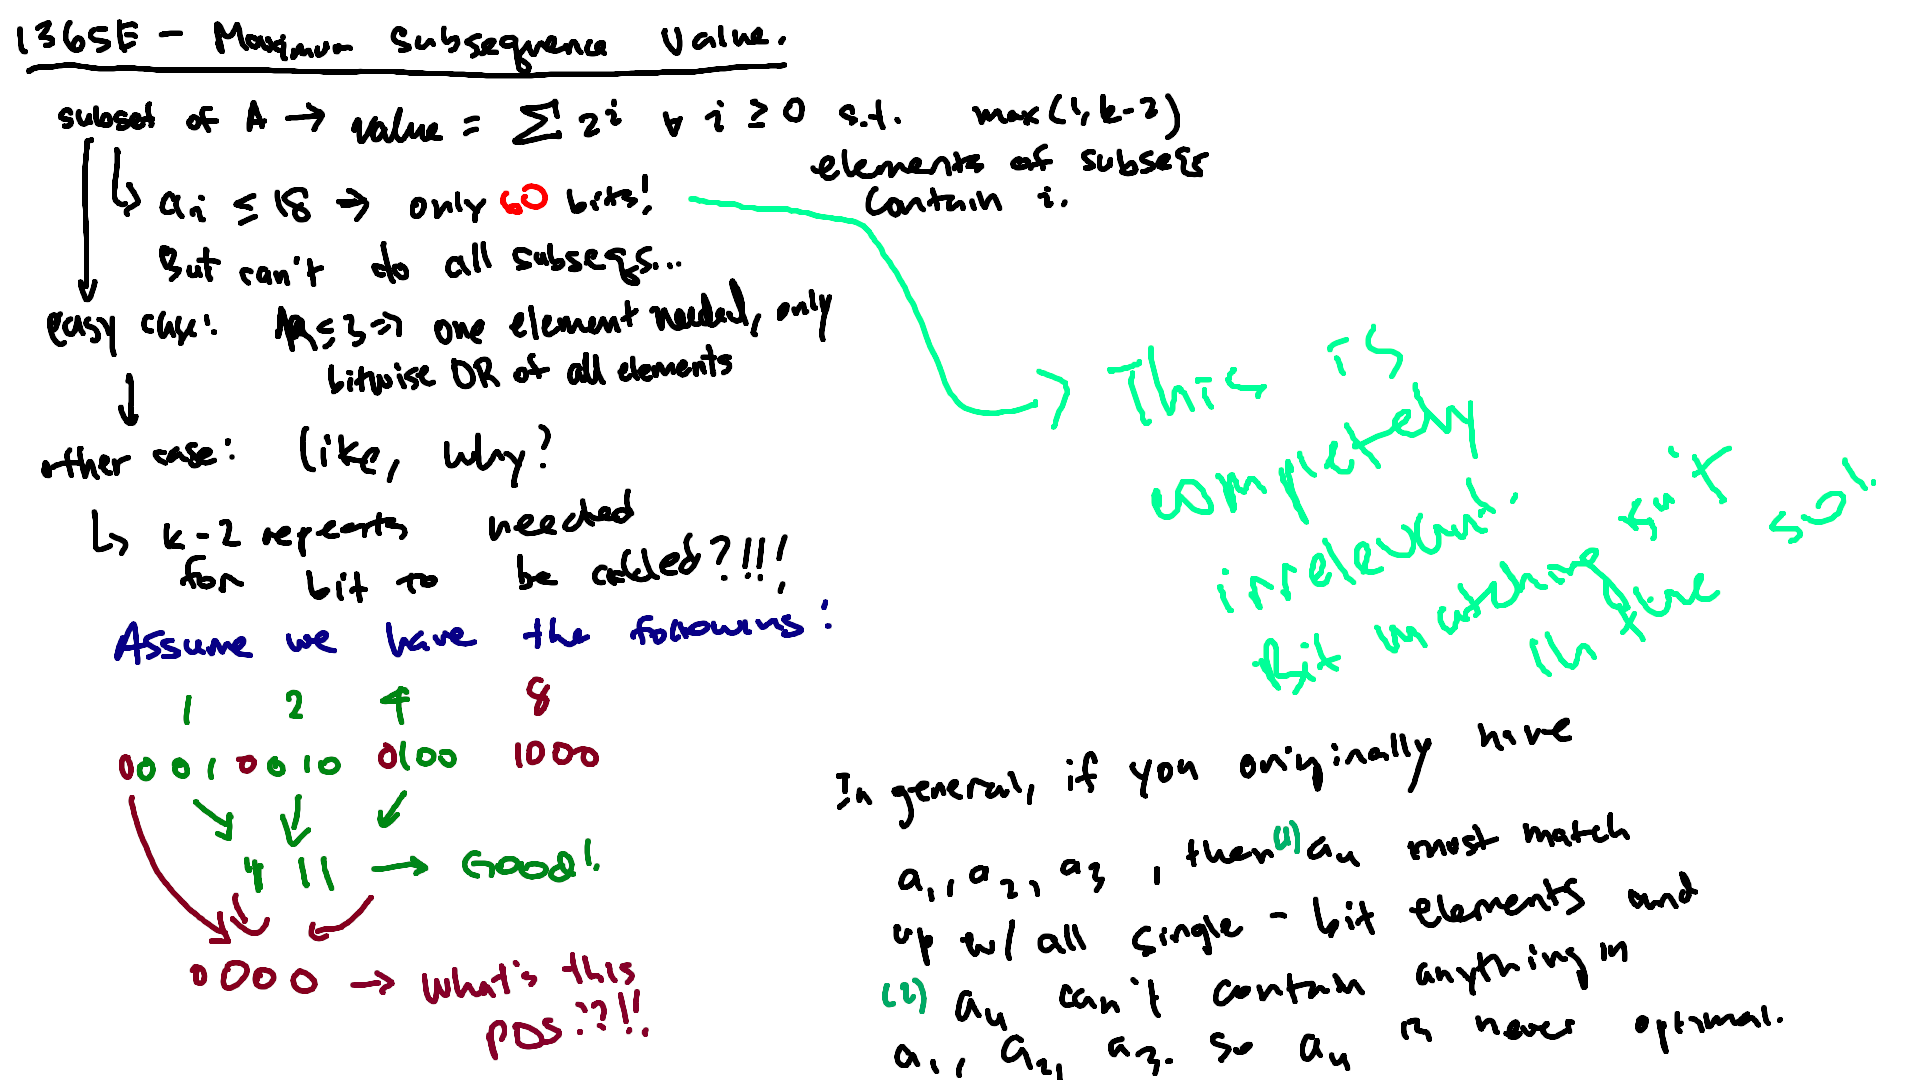 1365E - Maximum Subsequence Value.
subset of A → value = ∑ 2^i ∀ i ≥ 0 s.t. max(1, k-2)
elements of subseqs
contain i.
a_i ≤ 18 → only 60 bits!
But can't do all subseqs...
easy case: k ≤ 3 => one element needed, only
bitwise OR of all elements
other case: like, why?
↳ k-2 repeats needed
for bit to be added?!!!
This is
completely
irrelevant.
Bit matching isn't
in the sol.
Assume we have the following:
1 2 4 8
0001 0010 0100 1000
111 → Good!
0000 → What's this
POS??!!
In general, if you originally have
a1, a2, a3, then (1) a4 must match
up w/ all single-bit elements and
(2) a4 can't contain anything in
a1, a2, a3. So a4 is never optimal.